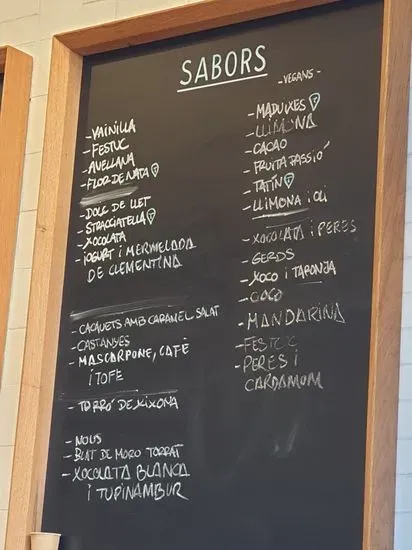 SABORS
-VAINILLA
-FESTUC
-AVELLANA
-FLOR DE NATA
-DOLÇ DE LLET
-STRACCIATELLA
-XOCOLATA
-IOGURT I MERMELADA
DE CLEMENTINA
-CACAUETS AMB CARAMEL SALAT
-CASTANYES
-MASCARPONE, CAFÈ
I TOFE
-TORRÓ DE XIXONA
-NOUS
-BLAT DE MORO TORRAT
-XOCOLATA BLANCA
I TUPINAMBUR
-VEGANS-
-MADUIXES
-LLIMONA
-CACAO
-FRUITA PASSIÓ
-TATÍN
-LLIMONA I OLI
-XOCOLATA I PERES
-GERDS
-XOCO I TARONJA
-COCO
-MANDARINA
-FESTUC
-PERES I
CARDAMOM